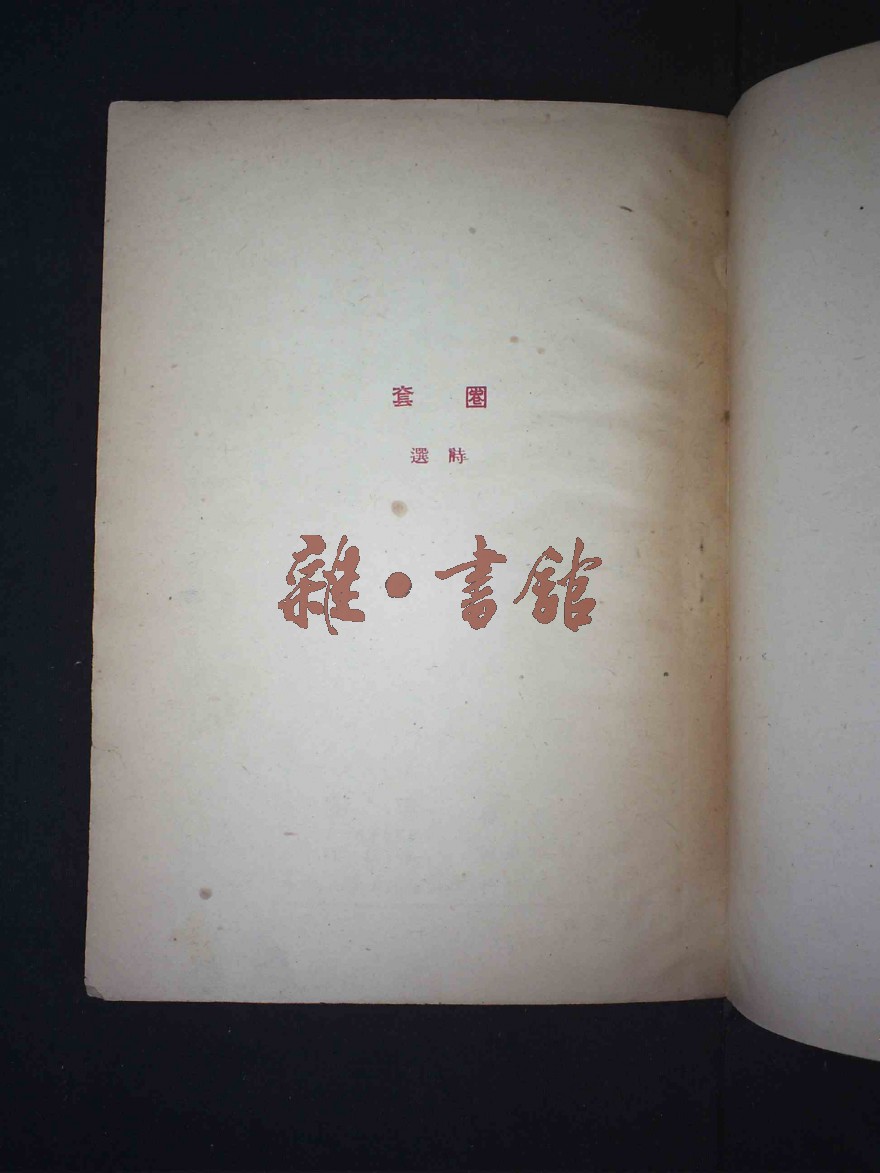 圈套
詩選
雜·書館